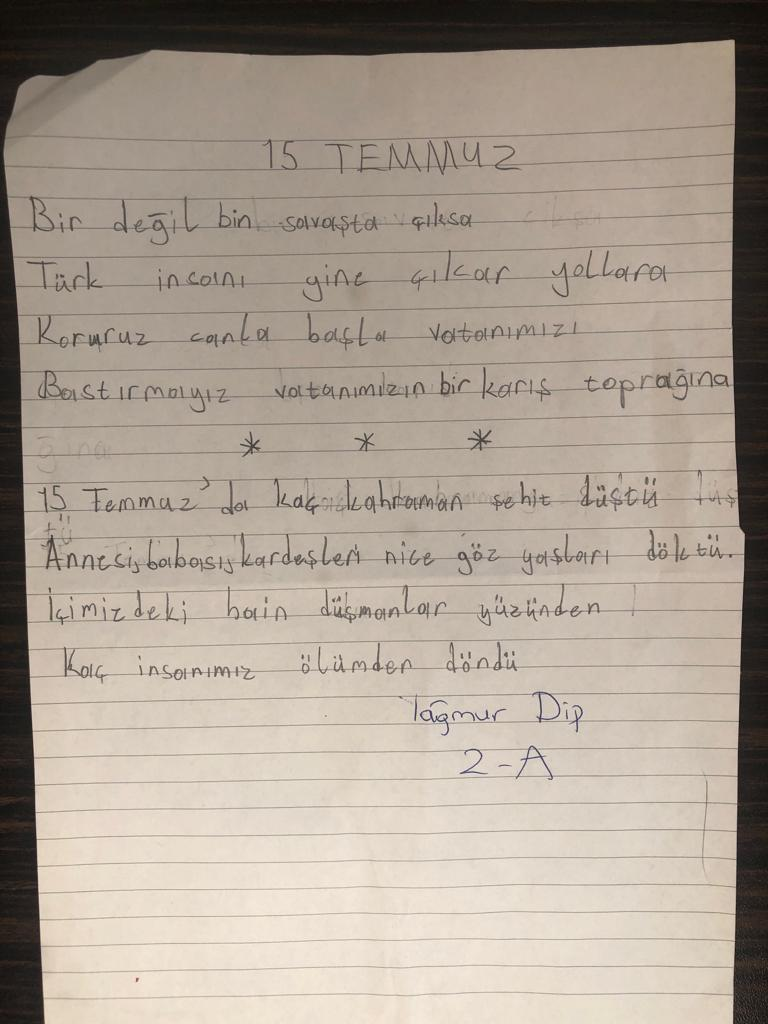 15 TEMMUZ
Bir değil bin savaşta çıksa
Türk insanı yine çıkar yollara
Koruruz canla başla vatanımızı
Bastırmayız vatanımızın bir karış toprağına
* * *
15 Temmuz'da kaç kahraman şehit düştü
Annesi, babası, kardeşleri nice göz yaşları döktü.
İçimizdeki hain düşmanlar yüzünden
Kaç insanımız ölümden döndü
Yağmur Dip
2-A